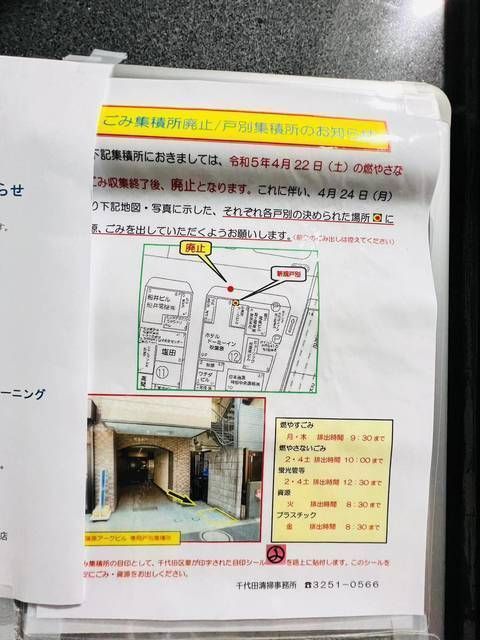 ごみ集積所廃止/戸別集積所のお知らせ
下記集積所におきましては、令和5年4月22日（土）の燃やさな
ごみ収集終了後、廃止となります。これに伴い、4月24日（月）
り下記地図・写真に示した、それぞれ各戸別の決められた場所に
源、ごみを出していただくようお願いします。
廃止
新規戸別
松井ビル
ホテル
ドーミーイン
秋葉原
塩田
11
12
ウチダ
ビル
燃やすごみ
月・木 排出時間 9:30まで
燃やさないごみ
2・4土 排出時間 10:00まで
蛍光管等
2・4土 排出時間 12:30まで
資源
火 排出時間 8:30まで
プラスチック
金 排出時間 8:30まで
アークビル 専用戸別集積所
み集積所の目印として、千代田区章が印字された目印シール
を路上に貼付します。このシールを
にごみ・資源をお出しください。
千代田清掃事務所 ☎3251-0566
らせ
ーニング
店